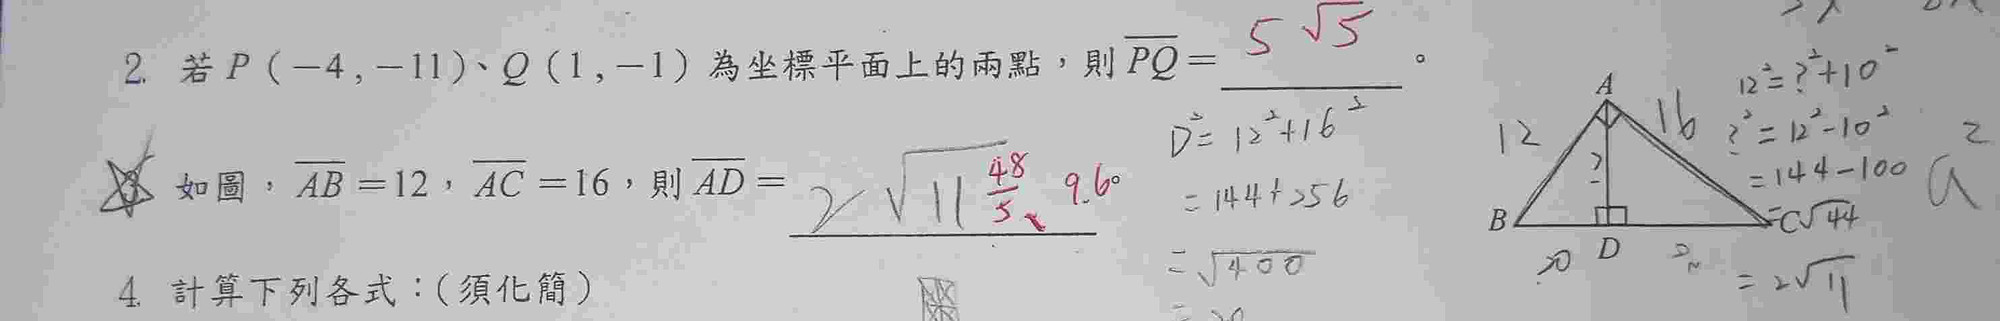 2. 若 P（−4 , −11）、Q（1 , −1）為坐標平面上的兩點，則 PQ = 5√5 。
如圖，AB = 12，AC = 16，則 AD = 2√11 48/5、9.6。
4. 計算下列各式：（須化簡）
D² = 12² + 16²
= 144 + 256
= √400
= 20
A
12
16
?
B
D
C
20
12² = ?² + 10²
?² = 12² − 10²
= 144 − 100
= √44
= 2√11
a²